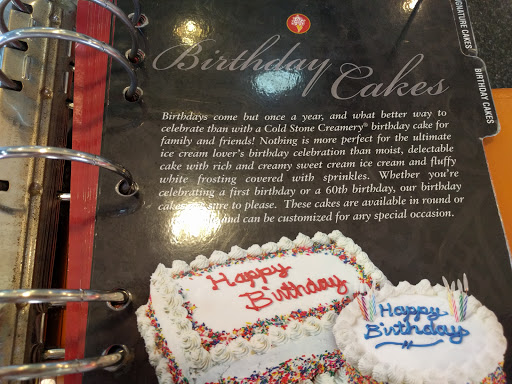 Birthday Cakes
SIGNATURE CAKES
BIRTHDAY CAKES
Birthdays come but once a year, and what better way to
celebrate than with a Cold Stone Creamery® birthday cake for
family and friends! Nothing is more perfect for the ultimate
ice cream lover's birthday celebration than moist, delectable
cake with rich and creamy sweet cream ice cream and fluffy
white frosting covered with sprinkles. Whether you're
celebrating a first birthday or a 60th birthday, our birthday
sure to please. These cakes are available in round or
and can be customized for any special occasion.
Happy
Birthday
Happy
Birthday